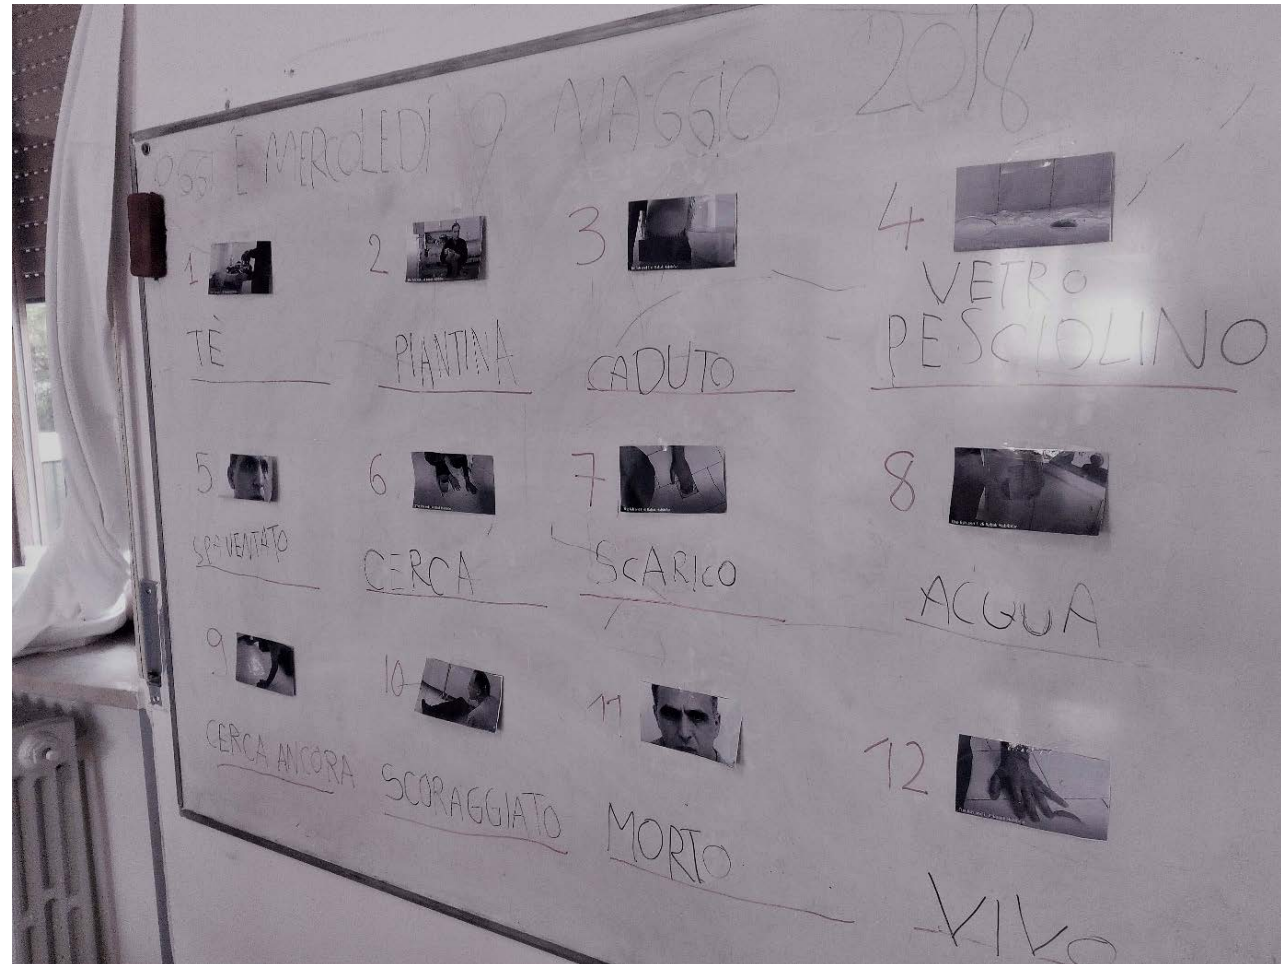 OGGI È MERCOLEDÌ 9 MAGGIO 2018
1 2 3 4
TÈ PIANTINA CADUTO VETRO
PESCIOLINO
5 6 7 8
SPAVENTATO CERCA SCARICO ACQUA
9 10 11 12
CERCA ANCORA SCORAGGIATO MORTO VIVO